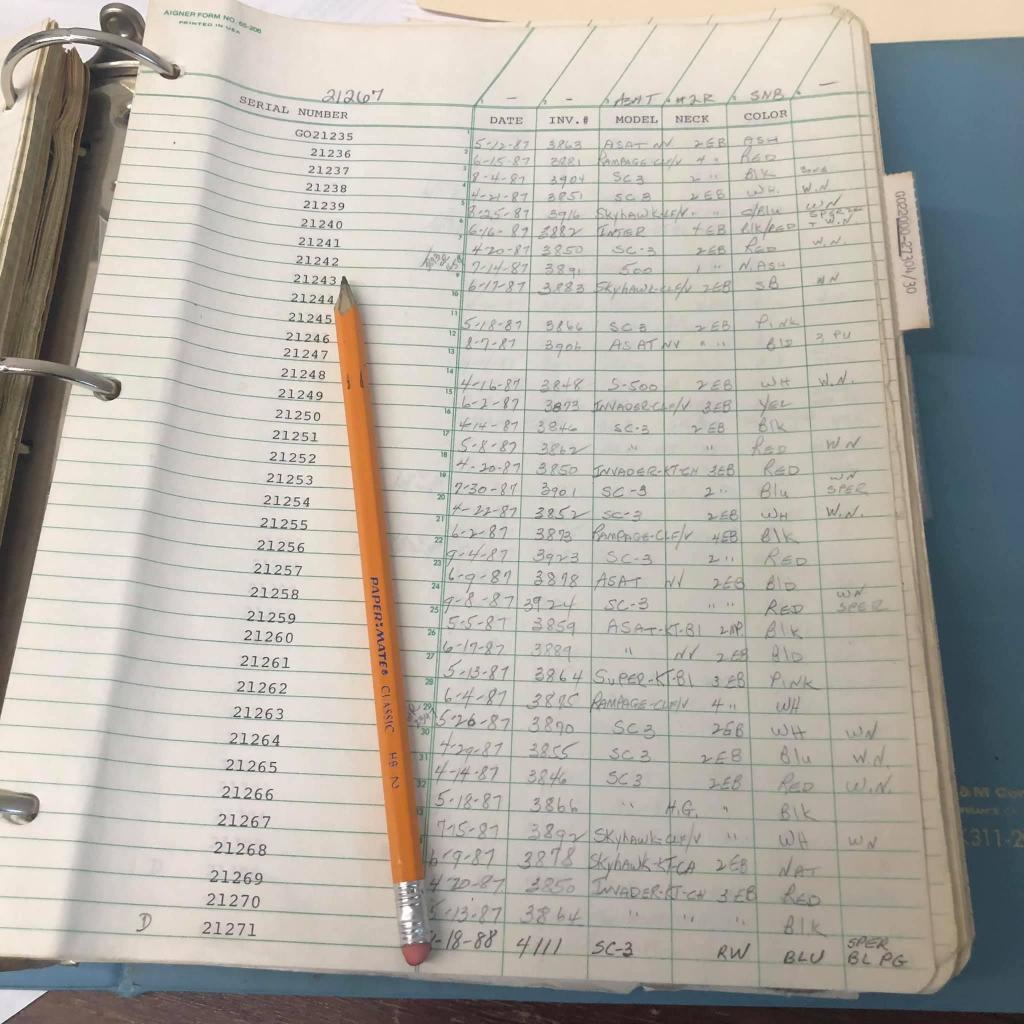 AIGNER FORM NO. 65-206
PRINTED IN USA
21267 - - ASAT #2R SNB -
SERIAL NUMBER DATE INV.# MODEL NECK COLOR
GO21235 5-12-87 3863 ASAT NV 2EB ASH
21236 6-15-87 3881 RAMPAGE-CLF/V 4 " RED
21237 8-4-87 3904 SC3 2 " Blk
21238 4-21-87 3851 SC3 2EB WH. W.N
21239 8-25-87 3916 SKyhAWK-CLF/V " " WN
21240 6-16-87 3882 INTER 4EB Blk/RED
21241 4-20-87 3850 SC-3 2EB RED W.N.
21242 7-14-87 3891 500 1 " N.ASH
21243 6-17-87 3883 SKyhAWK-CLF/V 2EB SB WN
21244
21245 5-18-87 3866 SC3 2EB PINK
21246 8-7-87 3906 ASAT NV " " BlD 3 PU
21247
21248 4-16-87 3848 S-500 2EB WH W.N.
21249 6-2-87 3873 INVADER-CLF/V 3EB YEL
21250 4-14-87 3846 SC-3 2EB Blk
21251 5-8-87 3862 " " RED WN
21252 4-20-87 3850 INVADER-KT-CH 3EB RED
21253 7-30-87 3901 SC-3 2 " Blu WN SPER
21254 4-22-87 3852 SC-3 2EB WH W.N.
21255 6-2-87 3873 RAMPAGE-CLF/V 4EB Blk
21256 9-4-87 3923 SC-3 2 " RED
21257 6-9-87 3878 ASAT NV 2EB BlD
21258 9-8-87 3924 SC-3 " " RED WN SPER
21259 5-5-87 3859 ASAT-KT-Bl 2MP Blk
21260 6-17-87 3889 " NV 2EB BlD
21261 5-13-87 3864 SUPER-KT-Bl 3EB PINK
21262 6-4-87 3875 RAMPAGE-CLF/V 4 " WH
21263 5-26-87 3870 SC3 2EB WH WN
21264 4-29-87 3855 SC3 2EB Blu W.N.
21265 4-14-87 3846 SC3 2EB RED W.N.
21266 5-18-87 3866 " H.G. " Blk
21267 7-15-87 3892 SKyhAWK-CLF/V " WH WN
21268 6-9-87 3878 SKyhAWK-KT-CA 2EB NAT
21269 4-20-87 3850 INVADER-KT-CH 3EB RED
21270 5-13-87 3864 " " " Blk
D 21271 -18-88 4111 SC-3 RW BLU SPER BL PG
PAPER:MATE® CLASSIC HB 2